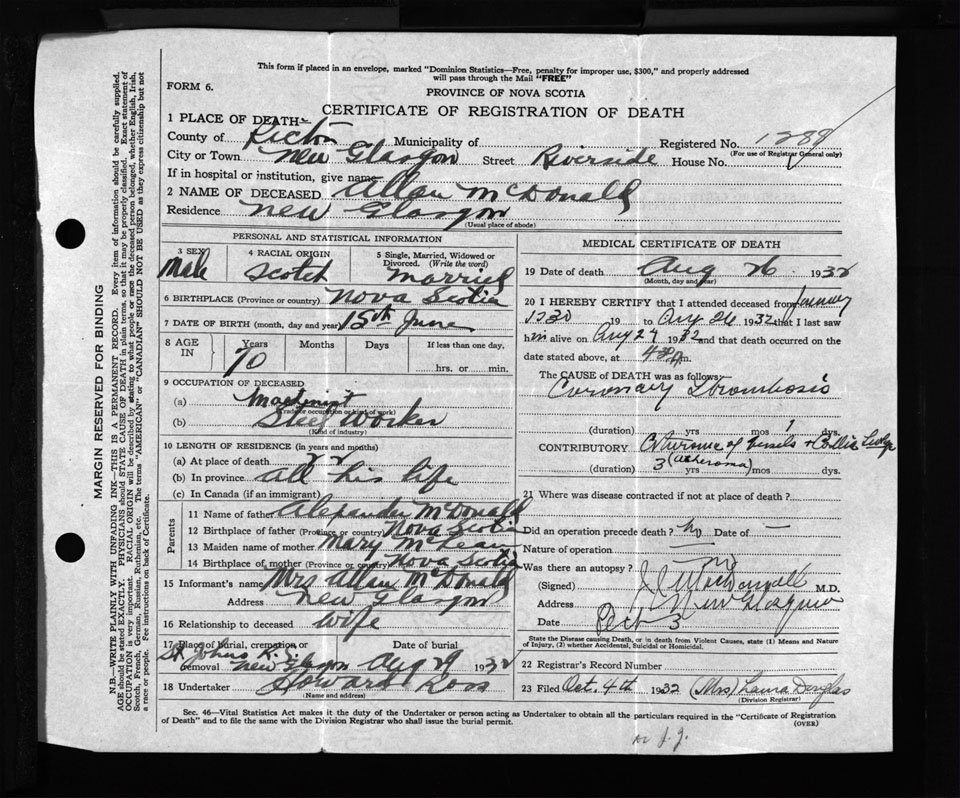 This form if placed in an envelope, marked "Dominion Statistics—Free, penalty for improper use, $300," and properly addressed
will pass through the Mail "FREE"
FORM 6.
PROVINCE OF NOVA SCOTIA
CERTIFICATE OF REGISTRATION OF DEATH
1 PLACE OF DEATH—
County of Pictou Municipality of Registered No. 1288
(For use of Registrar General only)
City or Town New Glasgow Street Riverside House No.
If in hospital or institution, give name
2 NAME OF DECEASED Allan McDonald
Residence New Glasgow
(Usual place of abode)
PERSONAL AND STATISTICAL INFORMATION
3 SEX Male
4 RACIAL ORIGIN Scotch
5 Single, Married, Widowed or Divorced. (Write the word) married
6 BIRTHPLACE (Province or country) Nova Scotia
7 DATE OF BIRTH (month, day and year) 15th June
8 AGE IN Years 70 Months Days If less than one day, hrs. or min.
9 OCCUPATION OF DECEASED
(a) Machinist
(Trade or occupation or kind of work)
(b) Steel Worker
(Kind of industry)
10 LENGTH OF RESIDENCE (in years and months)
(a) At place of death
(b) In province all his life
(c) In Canada (if an immigrant)
Parents
11 Name of father Alexander McDonald
12 Birthplace of father (Province or country) Nova Scotia
13 Maiden name of mother Mary McLean
14 Birthplace of mother (Province or country) Nova Scotia
15 Informant's name Mrs Allan McDonald
Address New Glasgow
16 Relationship to deceased wife
17 Place of burial, cremation or removal St Johns New Glasgow Date of burial Aug 29 1932
18 Undertaker Howard Ross
(Name and address)
MEDICAL CERTIFICATE OF DEATH
19 Date of death Aug 26 1932
(Month, day and year)
20 I HEREBY CERTIFY that I attended deceased from January
1930 19 to Aug 26 1932 that I last saw
him alive on Aug 1932 and that death occurred on the
date stated above, at m.
The CAUSE OF DEATH was as follows:
Coronary Thrombosis
(duration) yrs mos 1 dys.
CONTRIBUTORY Atheroma of Vessels
(Atheroma)
(duration) 3 yrs mos dys.
21 Where was disease contracted if not at place of death?
Did an operation precede death? No Date of —
Nature of operation —
Was there an autopsy? no
(Signed) M.D.
Address New Glasgow
Date 3
State the Disease causing Death, or in death from Violent Causes, state (1) Means and Nature
of Injury, (2) whether Accidental, Suicidal or Homicidal.
22 Registrar's Record Number
23 Filed Oct. 4th 1932 (Mrs) Laura Douglas
(Division Registrar)
Sec. 46—Vital Statistics Act makes it the duty of the Undertaker or person acting as Undertaker to obtain all the particulars required in the "Certificate of Registration
of Death" and to file the same with the Division Registrar who shall issue the burial permit.
(OVER)
MARGIN RESERVED FOR BINDING
N.B.—WRITE PLAINLY WITH UNFADING INK—THIS IS A PERMANENT RECORD. Every item of information should be carefully supplied.
AGE should be stated EXACTLY. PHYSICIANS should STATE CAUSE OF DEATH in plain terms, so that it may be properly classified. Exact statement of
OCCUPATION is very important. RACIAL ORIGIN will be described by stating to what people or race the deceased person belonged, whether English, Irish,
Scotch, French, German, Russian, Ruthenian, etc. The terms "AMERICAN" or "CANADIAN" SHOULD NOT BE USED as they express citizenship but not
a race or people. Fee instructions on back of Certificate.